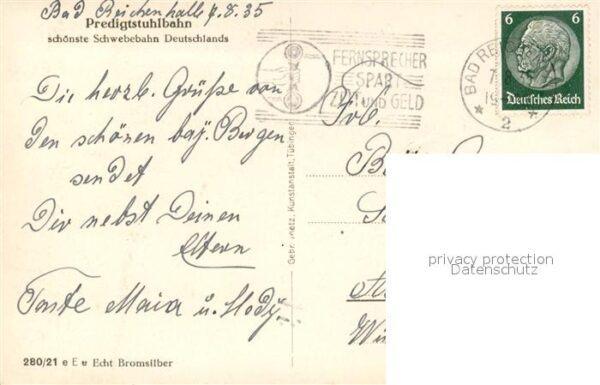 Bad Reichenhall 7.8.35
Predigtstuhlbahn
schönste Schwebebahn Deutschlands
Die herzl. Grüße von
den schönen bay. Bergen
sendet
Dir nebst Deinen
Eltern
Tante Maia u.
280/21 e E e Echt Bromsilber
Gebr. Metz, Kunstanstalt, Tübingen
FERNSPRECHER
SPART
ZEIT UND GELD
BAD RE
2
6 6
Deutsches Reich
Frl.
privacy protection
Datenschutz